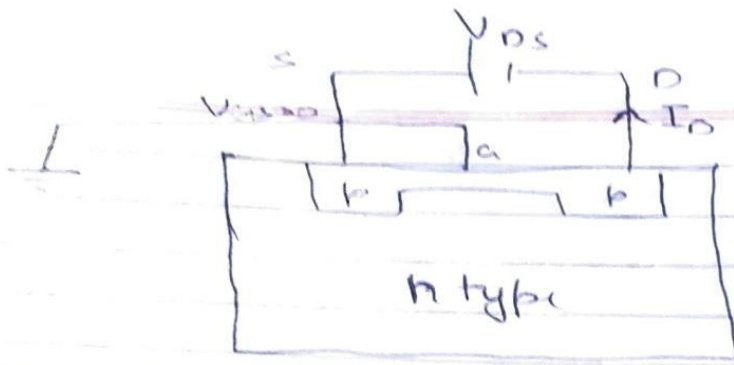 V DS
S
D
VGS=0
I D
G
p
p
n type